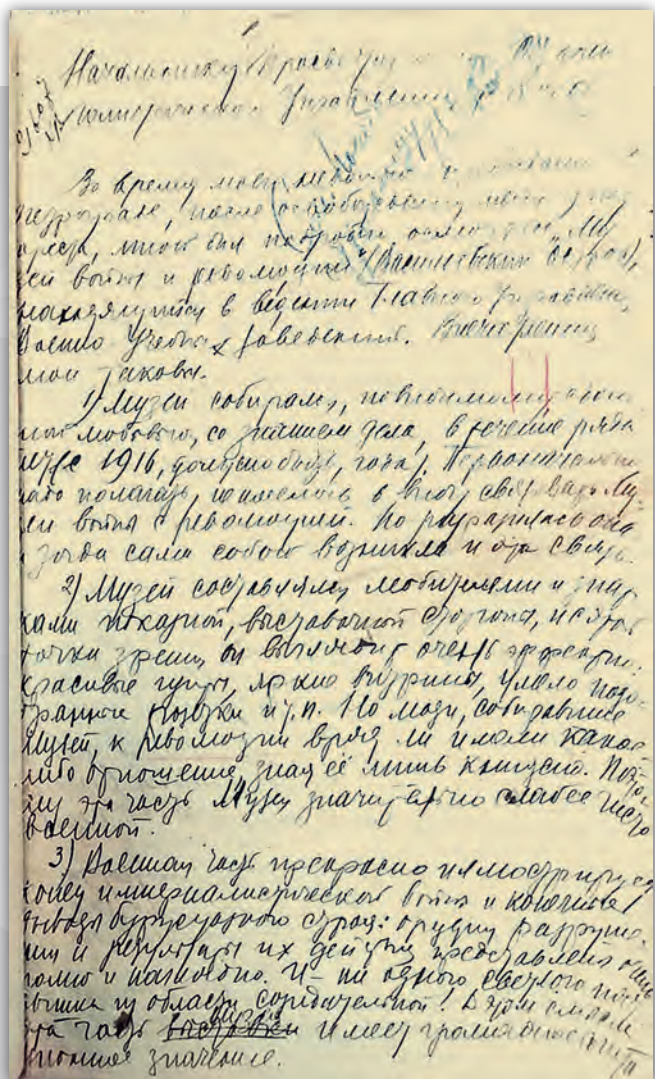 Начальнику Просве
Политического Управления
Во время моего
Петрограде, после освобождения меня
ареста, мною был подробно осмотрен „Му
зей войны и революции“ (Васильевский Остров),
находящийся в ведении Главного Управления
Военно Учебных Заведений. Впечатления
мои таковы.
1) Музей собирался, повидимому, с
ной любовью, со знанием дела, в течение ряда
лет (с 1916, должно быть, года). Первоначально
надо полагать, не имелось в виду связывать Му-
зей войны с революцией. Но разразилась она
и тогда сама собою возникла и эта связь.
2) Музей составлялся любителями и знато
ками показной, выставочной стороны, и с этой
точки зрения, он выглядит очень эффектно:
красивые группы, яркие витрины, умело подо-
бранные и т.п. Но люди, собиравшие
Музей, к революции вряд ли имели какое
либо отношение, зная её лишь книжно. Поэто
му эта часть Музея значительно слабее чисто
военной.
3) Военная часть прекрасно иллюстрирует
конец империалистической войны и конечные
выводы буржуазного строя: орудия разруше-
ния и результаты их действия представлены очень
полно и наглядно. И – ни одного светлого
из области созидательной! В этом смысле
эта часть имеет громадное
значение.